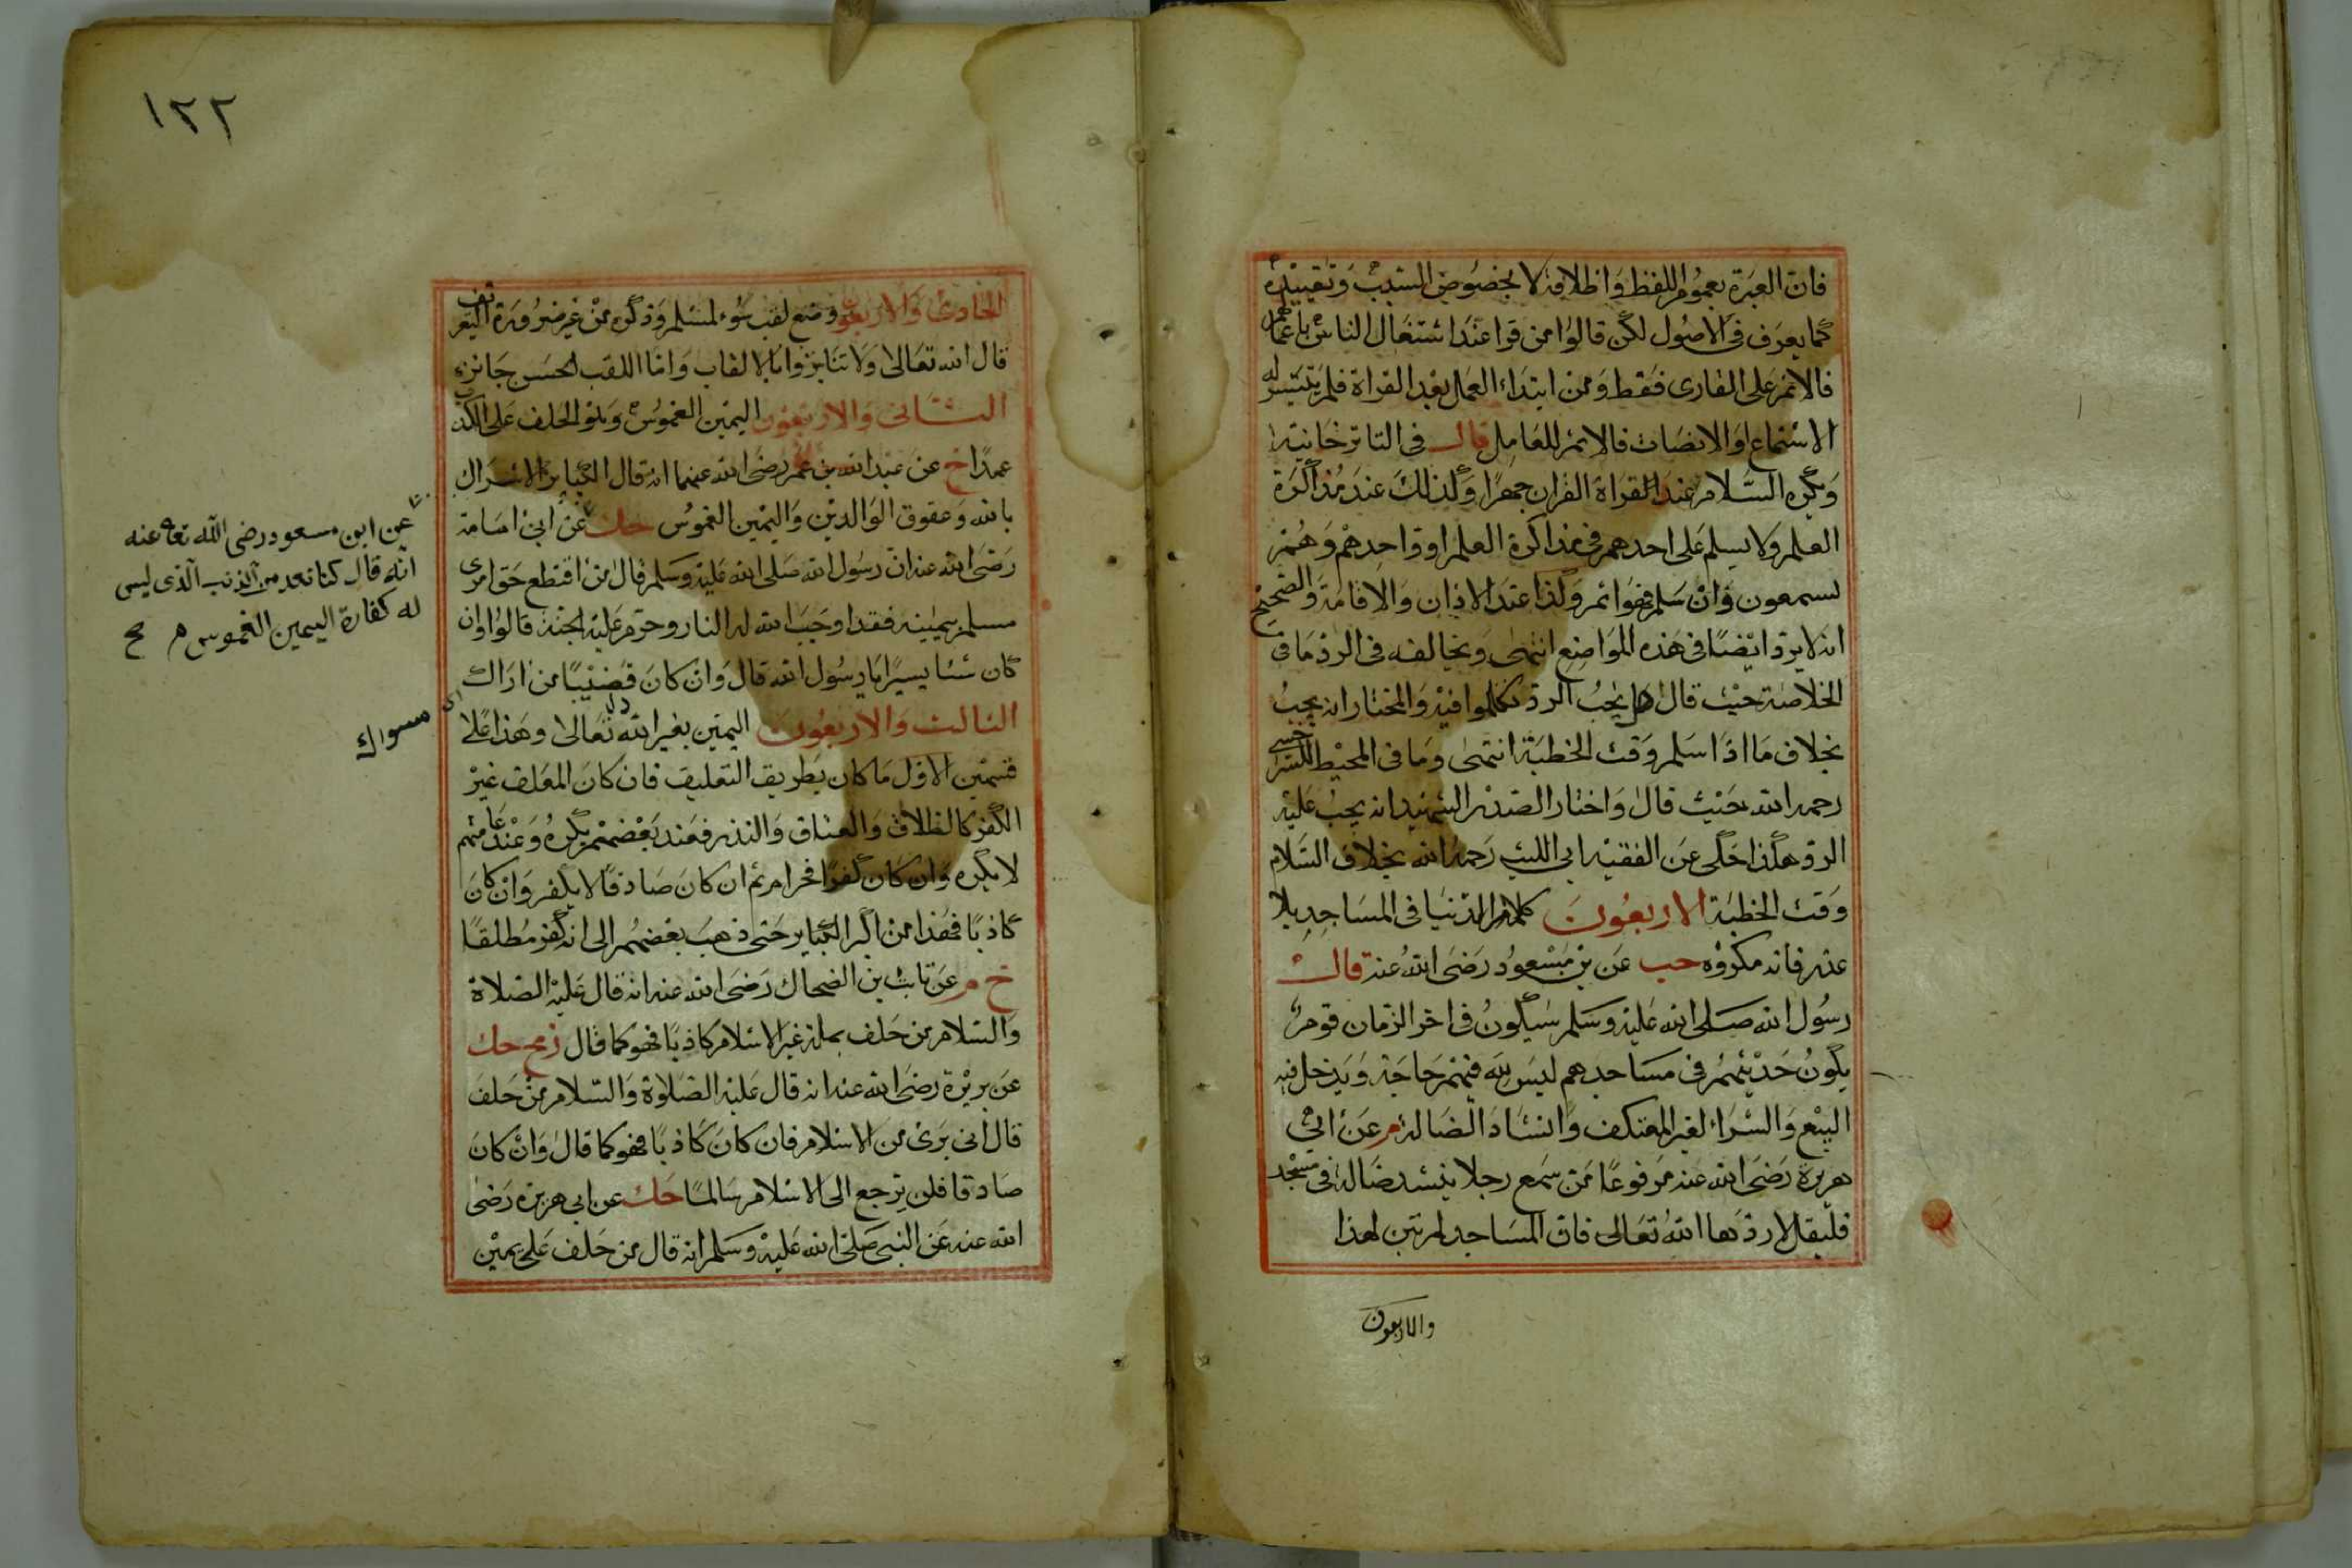 فان العبرة بعموم اللفظ واطلاقه لا بخصوص السبب وتقييده
كما يعرف فى الاصول لكن قالوا من قرا عند اشتغال الناس باعمالهم
فالاثم على القارى فقط ومن ابتداء العمل بعد القراة فلم يتيسر له
الاستماع والانصات فالاثم للعامل قال فى التاترخانيه
ويكره السلام عند القراة القران جهرا وكذلك عند مذاكرة
العلم ولا يسلم على احدهم فى مذاكرة العلم او واحدهم وهم
يسمعون وان سلم فهو اثم وكذا عند الاذان والاقامة والصحيح
انه لا يرد ايضا فى هذه المواضع انتهى ويخالفه فى الرد ما فى
الخلاصة حيث قال هل يجب الرد تكلموا فيه والمختار انه يجب
بخلاف ما اذا سلم وقت الخطبة انتهى وما فى المحيط للسرخسى
رحمه الله حيث قال واختار الصدر الشهيد انه يجب عليه
الرد هكذا حكى عن الفقيه ابى الليث رحمه الله بخلاف السلام
وقت الخطبة الاربعون كلام الدنيا فى المساجد بلا
عذر فانه مكروه حب عن بن مسعود رضى الله عنه قال
رسول الله صلى الله عليه وسلم سيكون فى اخر الزمان قوم
يكون حديثهم فى مساجدهم ليس لله فيهم حاجة ويدخل فيه
البيع والشراء لغير المعتكف وانشاد الضالة م عن ابى
هريرة رضى الله عنه مرفوعا من سمع رجلا ينشد ضالة فى مسجد
فليقل لا ردها الله تعالى فان المساجد لم تبن لهذا
والاربعون
١٢٢
الحادى والاربعون وضع لقب سوء لمسلم وذكره من غير ضرورة التعريف
قال الله تعالى ولا تنابزوا بالالقاب واما اللقب الحسن جائز
الثانى والاربعون اليمين الغموس وهو الحلف على الكذب
عمدا خ عن عبد الله بن عمر رضى الله عنهما انه قال الكبائر الاشراك
بالله وعقوق الوالدين واليمين الغموس حك عن ابى امامة
رضى الله عنه ان رسول الله صلى الله عليه وسلم قال من اقتطع حق امرى
مسلم بيمينه فقد اوجب الله له النار وحرم عليه الجنة قالوا وان
كان شئا يسيرا يا رسول الله قال وان كان قضيبا من اراك
الثالث والاربعون اليمين بغير الله تعالى وهذا على
قسمين الاول ما كان بطريق التعليق فان كان المعلق غير
الكفر كالطلاق والعتاق والنذر فعند بعضهم يكره وعند عامتهم
لا يكره وان كان كفرا فحرام ثم ان كان صادقا لا يكفر وان كان
كاذبا فهذا من اكبر الكبائر حتى ذهب بعضهم الى انه كفر مطلقا
خ م عن ثابت بن الضحاك رضى الله عنه انه قال عليه الصلاة
والسلام من حلف بملة غير الاسلام كاذبا فهو كما قال د مج حك
عن بريرة رضى الله عنه انه قال عليه الصلاة والسلام من حلف
قال انى برى من الاسلام فان كان كاذبا فهو كما قال وان كان
صادقا فلن يرجع الى الاسلام سالما حك عن ابى هريرة رضى
الله عنه عن النبى صلى الله عليه وسلم انه قال من حلف على يمين
عن ابن مسعود رضى الله تعا عنه
انه قال كنا نعد من الذنب الذى ليس
له كفارة اليمين الغموس م
اى مسواك